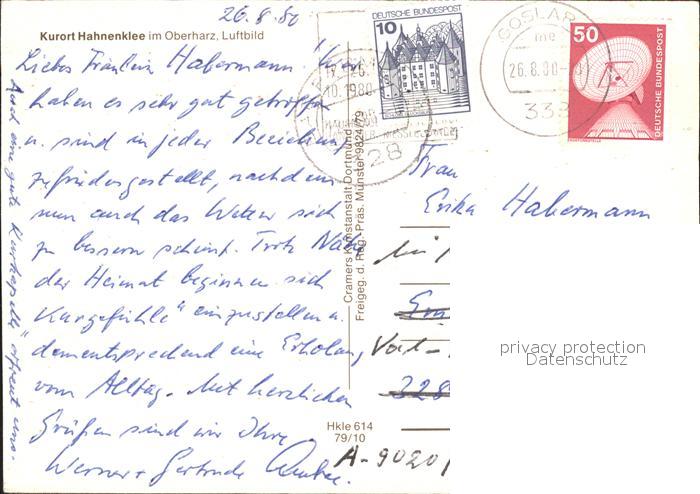 26.8.80
Kurort Hahnenklee im Oberharz, Luftbild
Liebes Fräulein Habermann. Wir
haben es sehr gut getroffen
u. sind in jeder Beziehung
zufriedengestellt, nachdem
nun auch das Wetter sich
zu bessern scheint. Trotz Nähe
der Heimat beginnen sich
"Kurgefühle" einzustellen u.
dementsprechend eine Erholung
vom Alltag. Mit herzlichen
Grüßen sind wir Ihre
Werner + Gertrude
Auch eine gute Kurkapelle erfreut uns.
Cramers Kunstanstalt Dortmund
Freigeg. d. Reg. Präs. Münster 9824/79
Hkle 614
79/10
10
DEUTSCHE BUNDESPOST
10.1980
28
GOSLAR
me
26.8.80
338
50
DEUTSCHE BUNDESPOST
Frau
Erika Habermann
328
A-9020
privacy protection
Datenschutz